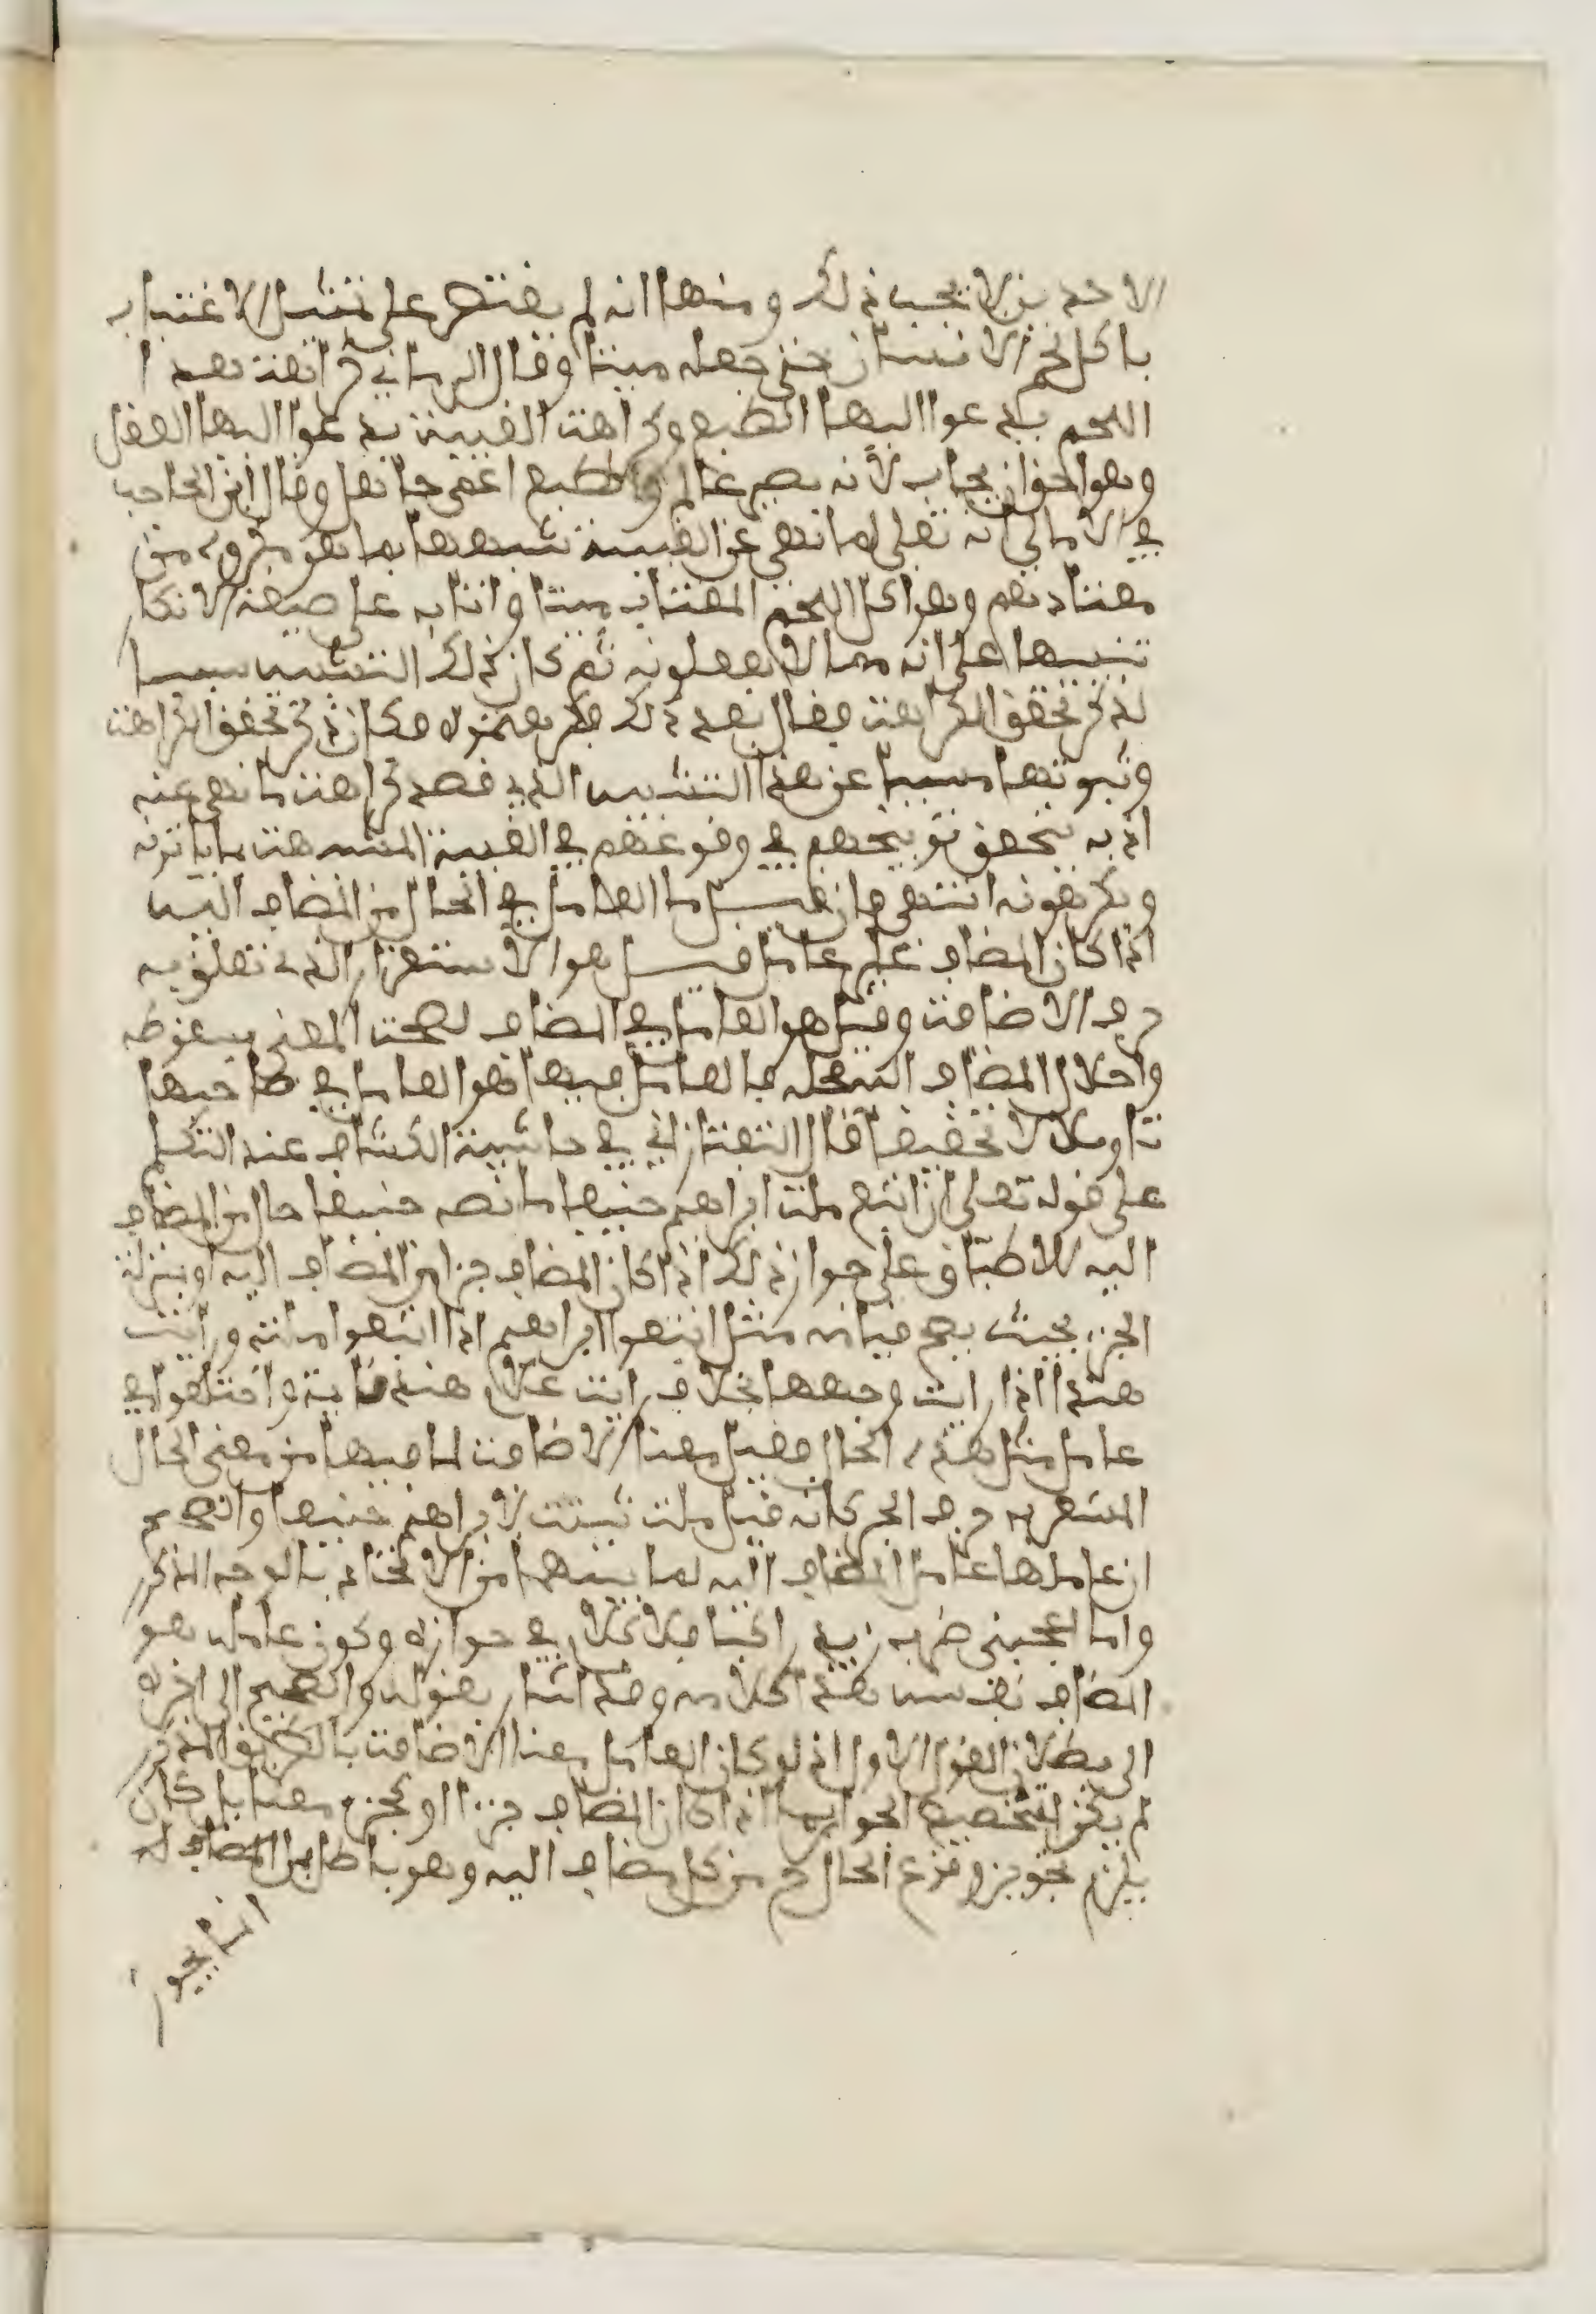 الاحدين لا يحب ذلك ومنها انه لم يقتصر على تمثيل الاغتياب
باكل لحم الانسان حتى جعله ميتا وقال الرماني كراهت هذا
اللحم يدعوا اليها الطبع وكراهت الغيبة يدعوا اليها العقل
وهو احق ان يجاب لانه بصير عالم والطبع اعمى جاهل وقال ابن الحاجب
في الامالي انه تعلى لما نهى عن الغيبة شبهها بما هو مكروه من
معتادهم وهو اكل اللحم المغتاب ميتا واتا به على صيغة الانكار
تنبيها على انه مما لا يفعلونه ثم كان ذلك التشبيه سببا
لذكر تحقق الكراهت فقال بعد ذلك فكرهتموه فكان ذكر تحقق الكراهت
وثبوتها مسببا عن هذا التشبيه الذي قصد كراهت ما نهى عنه
اذ به يتحقق توبيخهم في وقوعهم في الغيبة المشبهت بما ياتونه
ويكرهونه انتهى فان قيل ما العامل في الحال من المضاف اليه
اذا كان المضاف غير عامل قيل هو الاستقرار الذي تعلق به
حرف الاضافت وقيل هو العامل في المضاف لصحت المعنى بسقوطه
واحلال المضاف اليه محله فالعامل فيها هو العامل في صاحبها
تاويلا لا تحقيقا قال التفتازاني في حاشية الكشاف عند التكلم
على قوله تعلى ان اتبع ملت ابراهيم حنيفا ما نصه حنيفا حال من المضاف
اليه للاطباق على جواز ذلك اذا كان المضاف جزا من المضاف اليه او بمنزلة
الجزء بحيث يصح قيامه مثل اتبعوا ابراهيم اذا اتبعوا ملته ورايت
هندا اذا رايت وجهها بخلاف رايت غلام هند قايمة واختلفوا في
عامل مثل هذه الحال فقيل معنا الاضافت لما فيها من معنى الحال
المشعر به حرف الجر كانه قيل ملت ثبتت لابراهيم حنيفا والصحيح
ان عاملها عامل المضاف اليه لما بينهما من الاتحاد بالوجه المذكور
واما اعجبني ضرب زيد راكبا فلا كلام في جوازه وكون عامله هو
المضاف نفسه هذا كلامه وقد اشار بقوله والصحيح الى اخره
الى بطلان القول الاول اذ لو كان العامل معنا الاضافت بالطريق المذكور
لم يكن لتخصيص الجواب بما اذا كان المضاف جزءا او كجزء معنا بل كان
يلزم تجويز وقوع الحال من كل مضاف اليه وهو باطل
انما يجوز